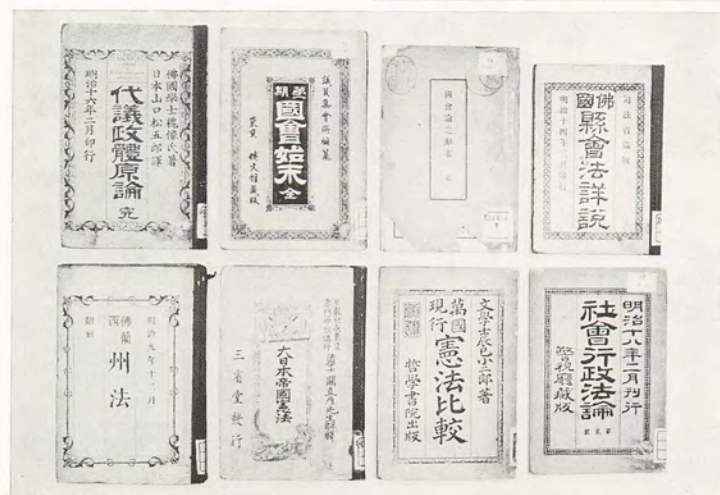 佛國學士槐僚氏著
日本山口松五郎譯
代議政體原論 完
明治十六年二月印行
議員集會所編纂
第壹期
國會始末 全
東京 博文館藏版
國會論之始末 全
司法省藏版
佛國縣會法詳說
明治十四年 月印行
明治九年十二月
佛蘭西州法
大日本帝國憲法
三省堂發行
文學士辰巳小二郎著
萬國現行憲法比較
哲學書院出版
明治十八年二月刊行
社會行政法論
警視廳藏版